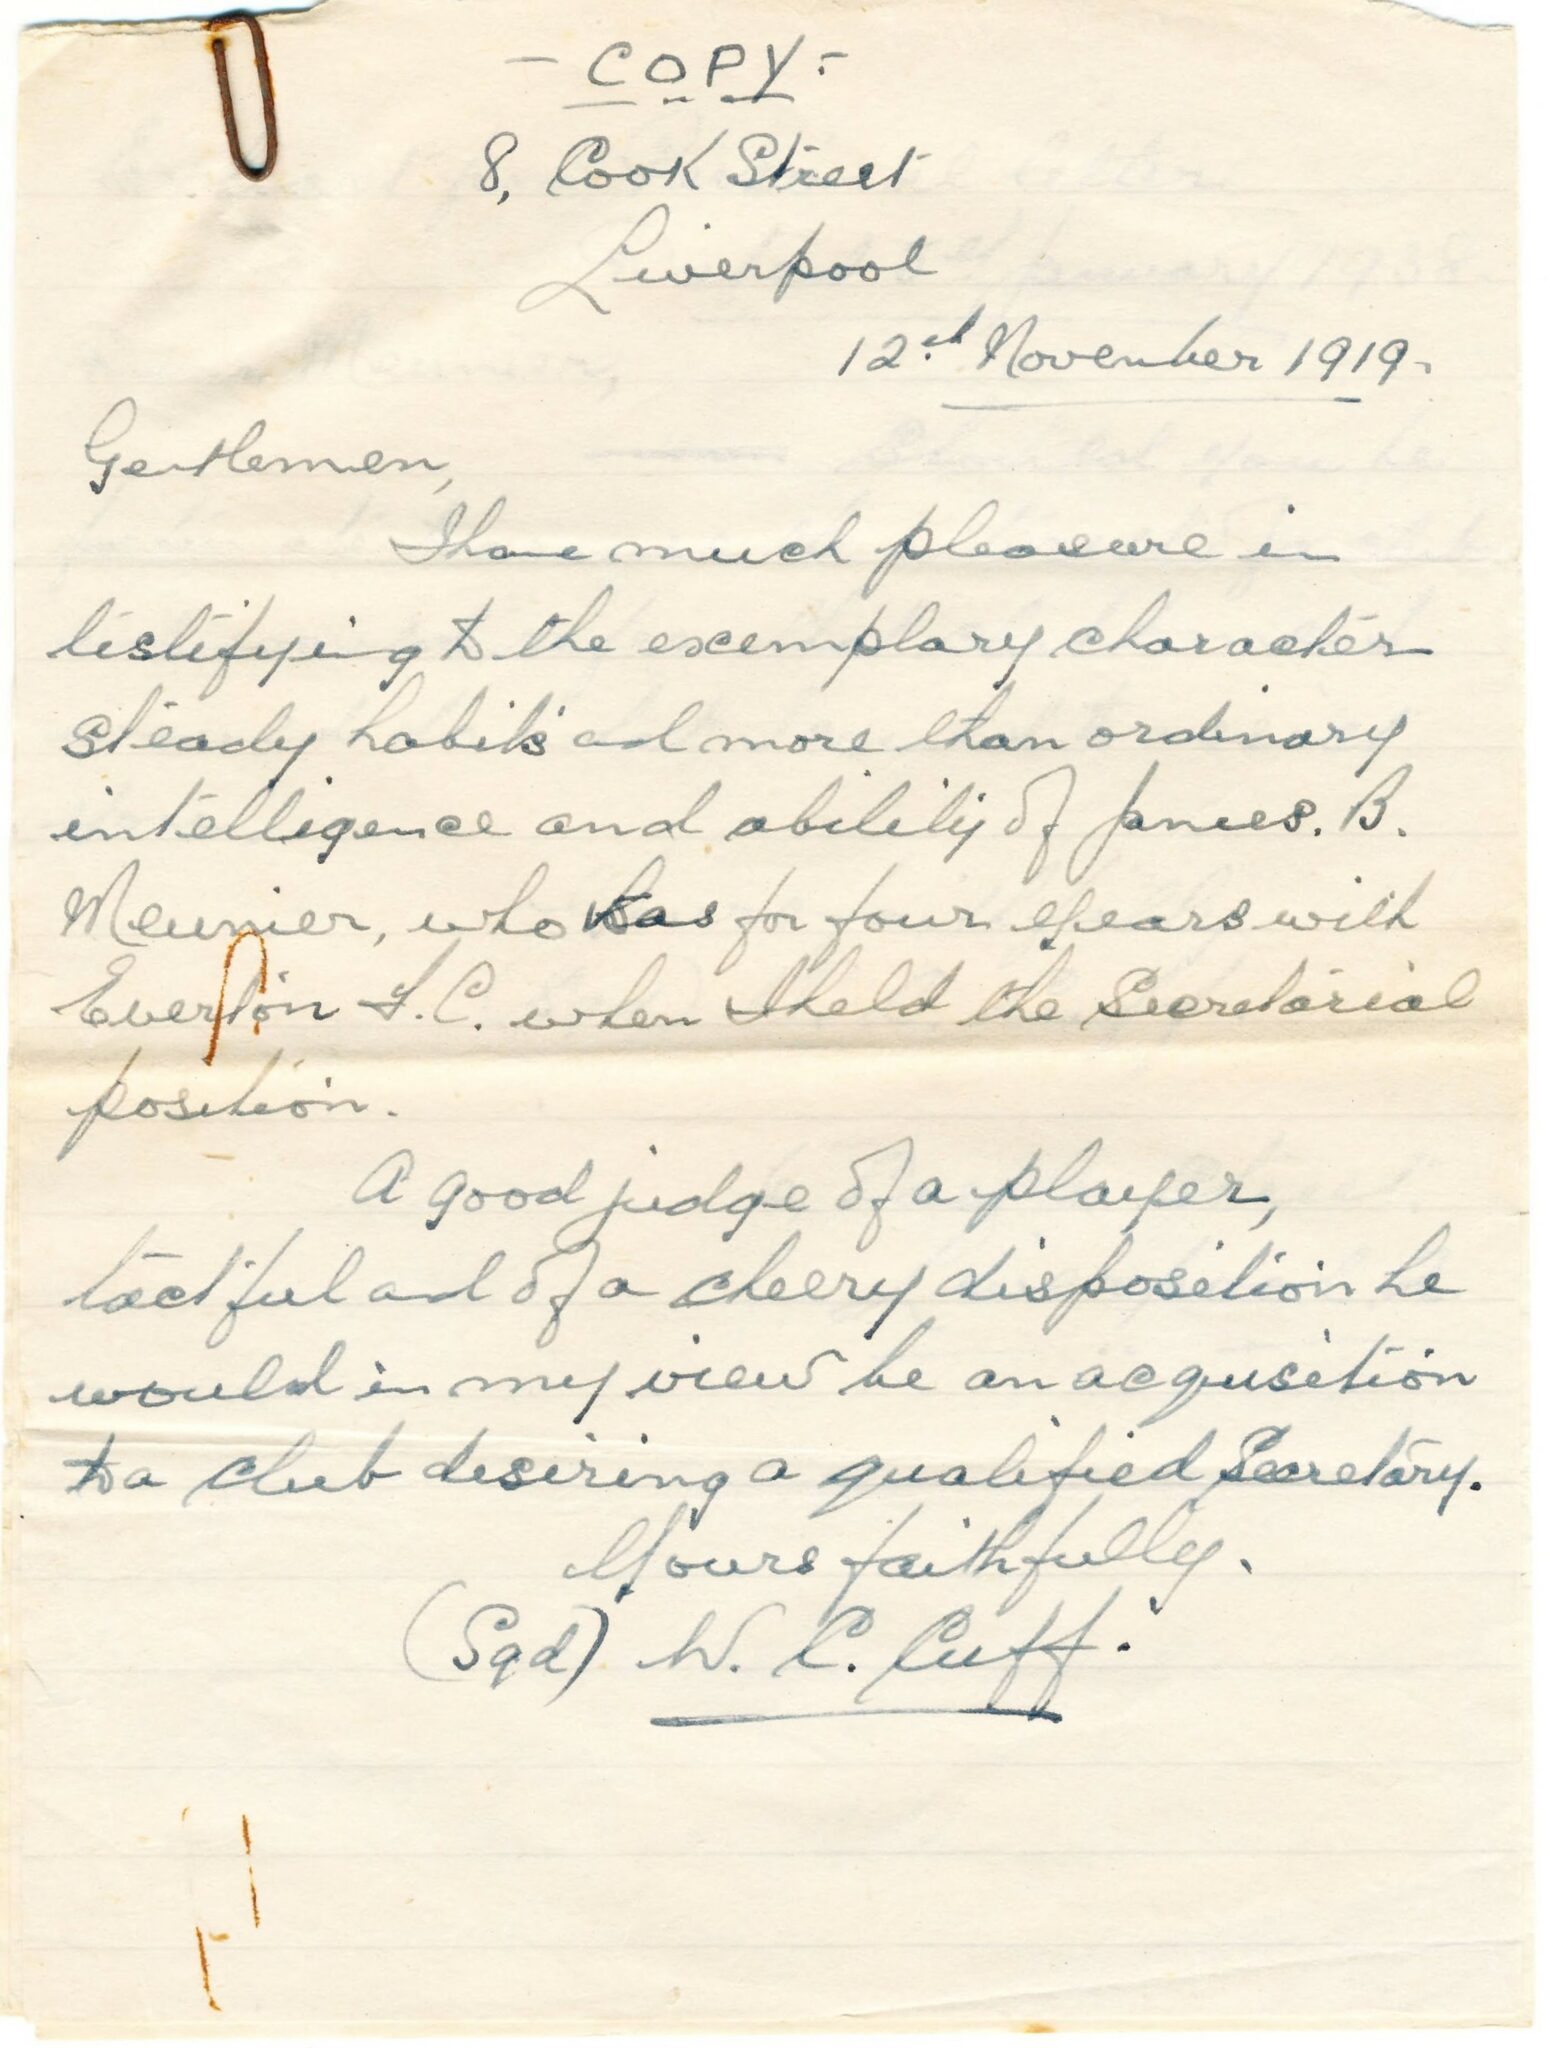 - COPY -
8, Cook Street
Liverpool
12th November 1919.
Gentlemen,
I have much pleasure in
testifying to the exemplary character
steady habits and more than ordinary
intelligence and ability of James. B.
Meunier, who was for four years with
Everton F.C. when I held the Secretarial
position.
A good judge of a player,
tactful and of a cheery disposition he
would in my view be an acqusition
to a club desiring a qualified Secretary.
Yours faithfully.
(Sgd) W. C. Cuff.